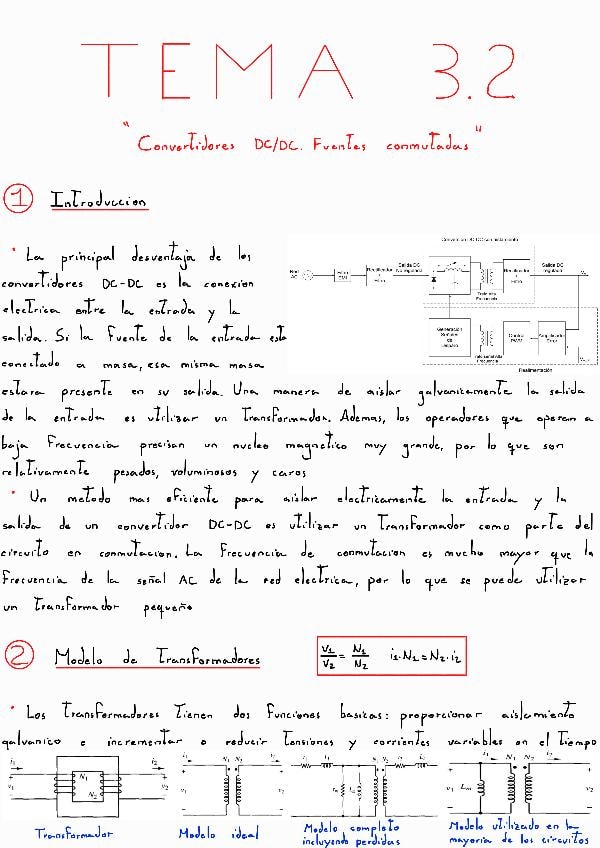 TEMA 3.2
"Convertidores DC/DC. Fuentes conmutadas"
1 Introduccion
• La principal desventaja de los
convertidores DC-DC es la conexion
electrica entre la entrada y la
salida. Si la fuente de la entrada esta
conectado a masa, esa misma masa
estara presente en su salida. Una manera de aislar galvanicamente la salida
de la entrada es utilizar un transformador. Ademas, los operadores que operan a
baja frecuencia precisan un nucleo magnetico muy grande, por lo que son
relativamente pesados, voluminosos y caros
• Un metodo mas eficiente para aislar electricamente la entrada y la
salida de un convertidor DC-DC es utilizar un transformador como parte del
circuito en conmutacion. La frecuencia de conmutacion es mucho mayor que la
frecuencia de la señal AC de la red electrica, por lo que se puede utilizar
un transformador pequeño
Conversión DC-DC con aislamiento
Red AC
Filtro EMI
Rectificador + Filtro
Salida DC No regulada
Trafo alta Frecuencia
Rectificador + Filtro
Salida DC regulada
Generación Señales de Disparo
Control PWM
Amplificador Error
Realimentación
2 Modelo de Transformadores
V1/V2 = N1/N2 i1·N1=N2·i2
• Los transformadores tienen dos funciones basicas: proporcionar aislamiento
galvanico e incrementar o reducir tensiones y corrientes variables en el tiempo
i1 N1 N2 i2 v1 v2
Transformador
i1 N1 N2 i2 v1 v2
Modelo ideal
i1 N1 N2 i2
Modelo completo
incluyendo perdidas
i1 N1 N2 i2 v1 Lm v2
Modelo utilizado en la
mayoria de los circuitos